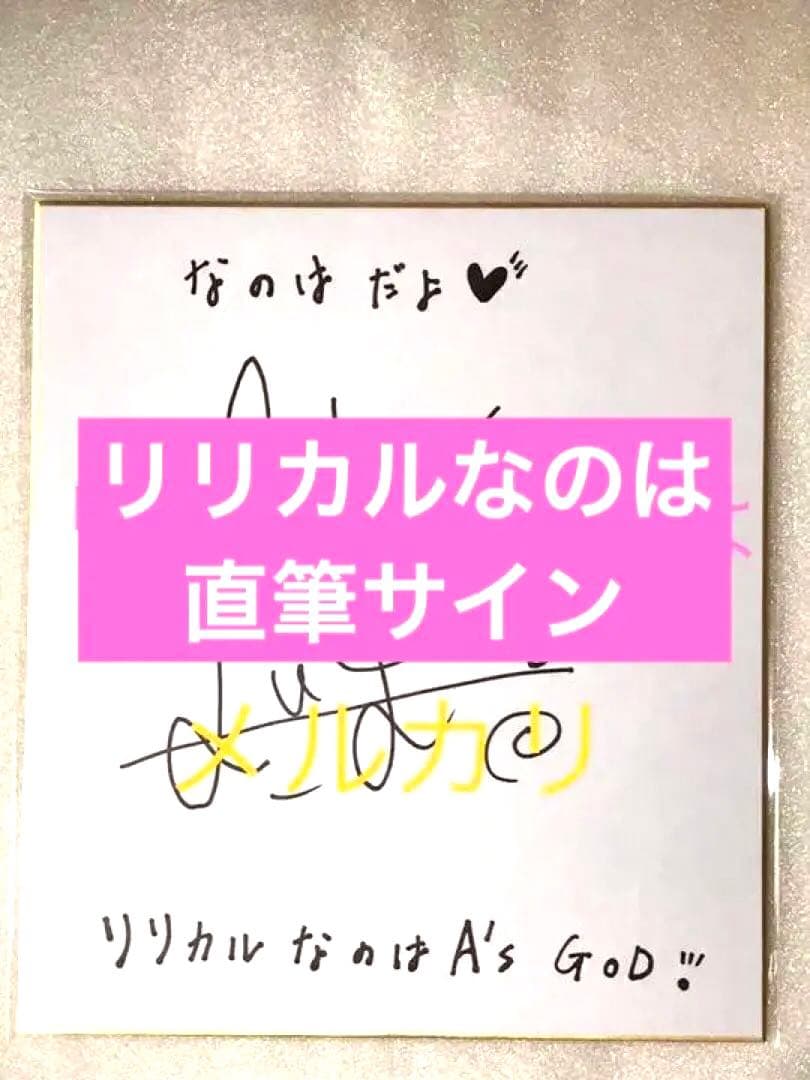 なのはだよ♥
リリカルなのは
直筆サイン
メルカリ
リリカルなのはA's GOD!!!